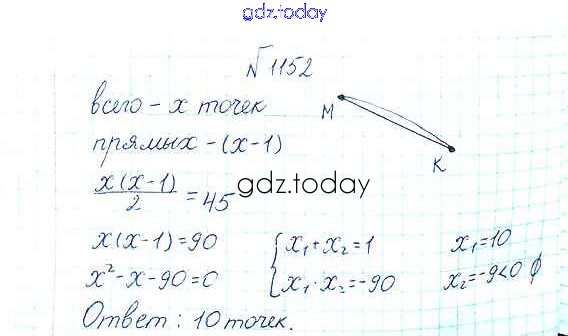 gdz.today
№1152
всего - x точек
M
прямых - (x-1)
K
x(x-1)/2 = 45
gdz.today
x(x-1)=90
x²-x-90=0
{x₁+x₂=1
x₁·x₂=-90
x₁=10
x₂=-9<0 ∅
Ответ: 10 точек.